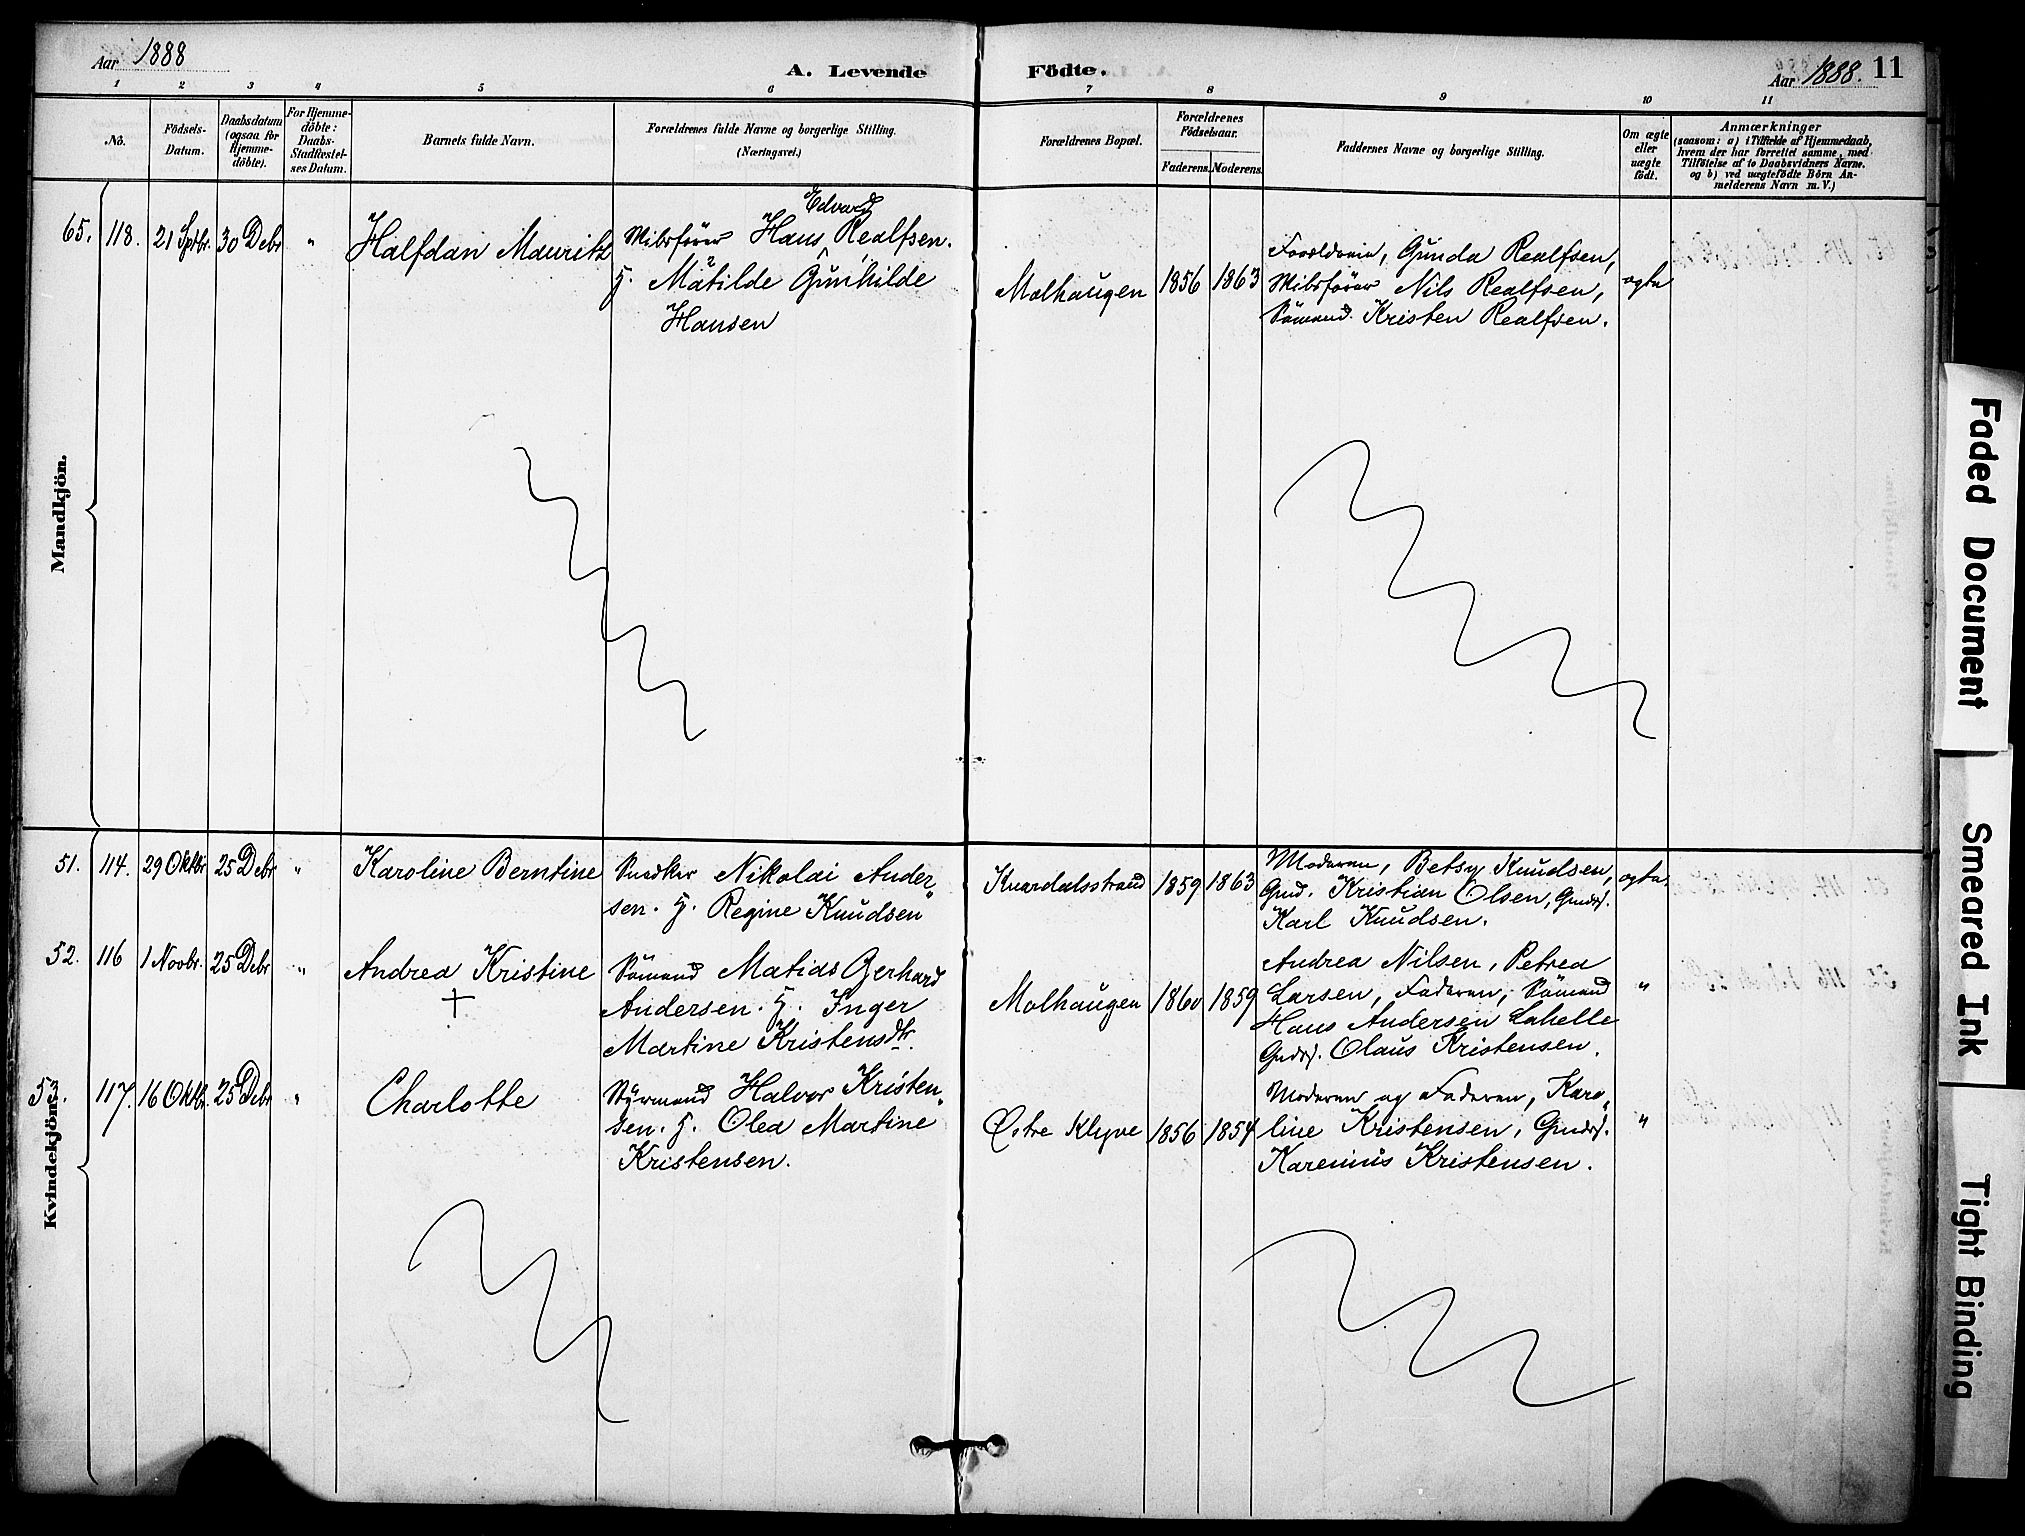 Aar 1888
A. Levende Födte.
Aar 1888. 11
1 2 3 4 5 6 7 8 9 10 11
No.
Födsels-
Datum.
Daabsdatum
(ogsaa for
Hjemme-
döbte).
For Hjemme-
döbte:
Daabs-
Stadfæstel-
ses Datum.
Barnets fulde Navn.
Forældrenes fulde Navne og borgerlige Stilling.
(Næringsvei.)
Forældrenes Bopæl.
Forældrenes
Födselsaar.
Faderens. Moderens.
Faddernes Navne og borgerlige Stilling.
Om ægte
eller
uægte
födt.
Anmærkninger
(saasom: a) i Tilfælde af Hjemmedaab,
hvem der har forrettet samme, med
Tilföielse af to Daabsvidners Navne.
og b) ved uægtefödte Börn An-
melderens Navn m. V.)
Mandkjön.
65. 118. 21 Sptbr. 30 Debr " Halfdan Mauritz
Edvard
Hans Realfsen.
g. Matilde Gunhilde
Hansen
Molhaugen 1856 1863
Gunda Realfsen,
Nils Realfsen,
Sømand. Kristen Realfsen.
ægte
Kvindekjön.
51. 114. 29 Oktbr 25 Debr " Karoline Berntine
Snedker Nikolai Ander„
sen. g. Regine Knudsen
Knardalsstrand 1859 1863
Moderen, Betsy Knudsen,
Gmd. Kristian Olsen, Gmds.
Karl Knudsen.
ægte.
52. 116 1 Novbr. 25 Debr " Andrea Kristine
+
Sømand Matias Gerhard
Andersen. g. Inger
Martine Kristensdtr.
Molhaugen 1860 1859
Andrea Nilsen, Petrea
Larsen, Faderen, Sømand
Hans Andersen Lahelle
Gmds. Olaus Kristensen.
"
53. 117. 16 Oktb. 25 Debr " Charlotte
Styrmand Halvor Kristen„
sen. g. Olea Martine
Kristensen.
Østre Klyve 1856 1854
Moderen og Faderen, Karo„
line Kristensen, Gmds.
Karenius Kristensen.
"
Faded Document
Smeared Ink
Tight Binding